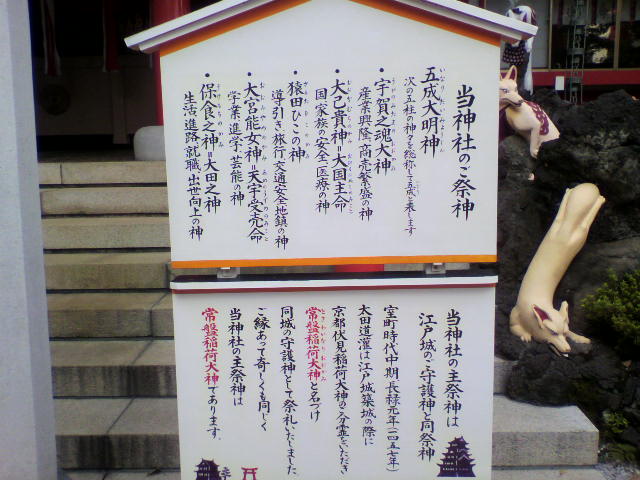 当神社のご祭神
五成大明神
いなりだいみょうじん
次の五柱の神々を総称して五成と表します
・宇賀之魂大神
産業興隆 商売繁盛の神
・大己貴神＝大国主命
国家族の安全 医療の神
・猿田ひこの神
導引き旅行交通安全地鎮の神
・大宮能女神＝天宇受売命
学業進学・芸能の神
・保食之神＝大田之神
生活進路就職・出世向上の神
当神社の主祭神は
江戸城のご守護神と同祭神
室町時代中期・長禄元年（一四五七年）
太田道灌は江戸城築城の際に
京都伏見稲荷大神のご分霊をいただき
常盤稲荷大神と名づけ
ときわいなりおおかみ
同城の守護神として祭礼いたしました。
ご縁あって奇しくも同じく
当神社の主祭神は
常盤稲荷大神であります。